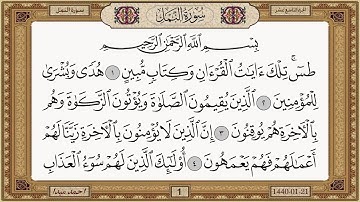 الجزء التاسع عشر
سورة النمل
سورة النمل
بِسْمِ ٱللَّهِ ٱلرَّحْمَٰنِ ٱلرَّحِيمِ
طسٓ ۚ تِلْكَ ءَايَٰتُ ٱلْقُرْءَانِ وَكِتَابٍ مُّبِينٍ ١ هُدًى وَبُشْرَىٰ
لِلْمُؤْمِنِينَ ٢ ٱلَّذِينَ يُقِيمُونَ ٱلصَّلَوٰةَ وَيُؤْتُونَ ٱلزَّكَوٰةَ وَهُم
بِٱلْءَاخِرَةِ هُمْ يُوقِنُونَ ٣ إِنَّ ٱلَّذِينَ لَا يُؤْمِنُونَ بِٱلْءَاخِرَةِ زَيَّنَّا لَهُمْ
أَعْمَٰلَهُمْ فَهُمْ يَعْمَهُونَ ٤ أُو۟لَٰٓئِكَ ٱلَّذِينَ لَهُمْ سُوٓءُ ٱلْعَذَابِ
1440-01-21
1